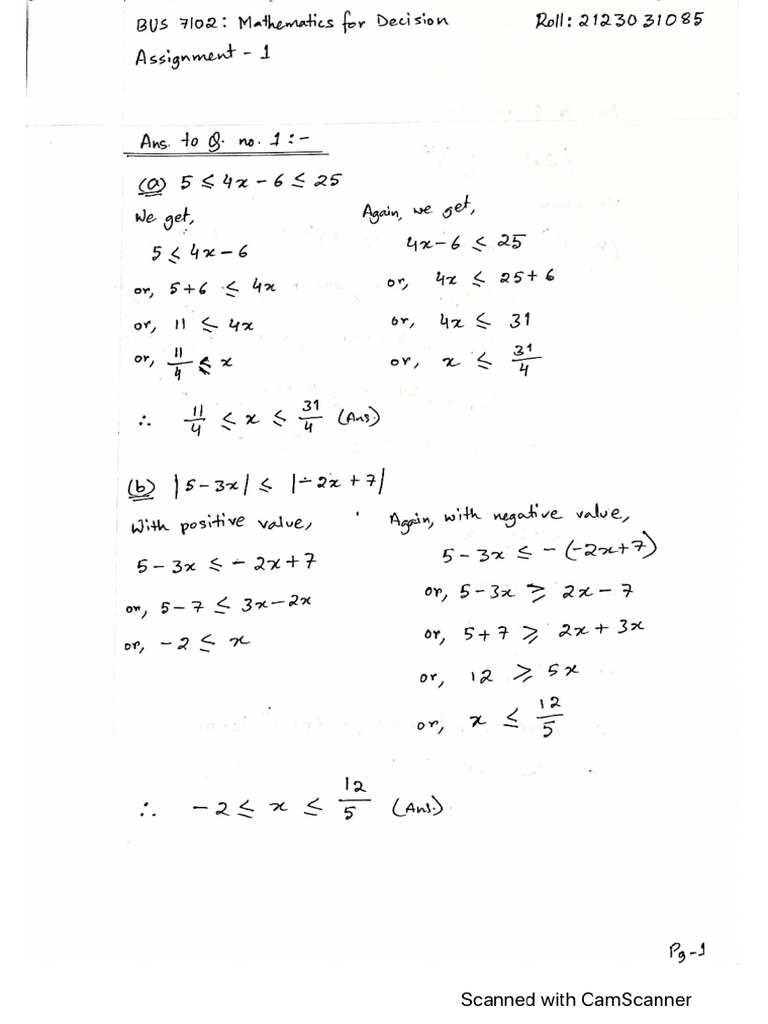 BUS 7102: Mathematics for Decision Roll: 2123031085
Assignment - 1
Ans. to Q. no. 1 :-
(a) 5 ≤ 4x - 6 ≤ 25
We get,
5 ≤ 4x - 6
or, 5+6 ≤ 4x
or, 11 ≤ 4x
or, 11/4 ≤ x
Again, we get,
4x-6 ≤ 25
or, 4x ≤ 25+6
or, 4x ≤ 31
or, x ≤ 31/4
∴ 11/4 ≤ x ≤ 31/4 (Ans.)
(b) |5-3x| ≤ |-2x+7|
With positive value,
5-3x ≤ -2x+7
or, 5-7 ≤ 3x-2x
or, -2 ≤ x
Again, with negative value,
5-3x ≤ -(-2x+7)
or, 5-3x ≥ 2x-7
or, 5+7 ≥ 2x+3x
or, 12 ≥ 5x
or, x ≤ 12/5
∴ -2 ≤ x ≤ 12/5 (Ans.)
Pg-1
Scanned with CamScanner